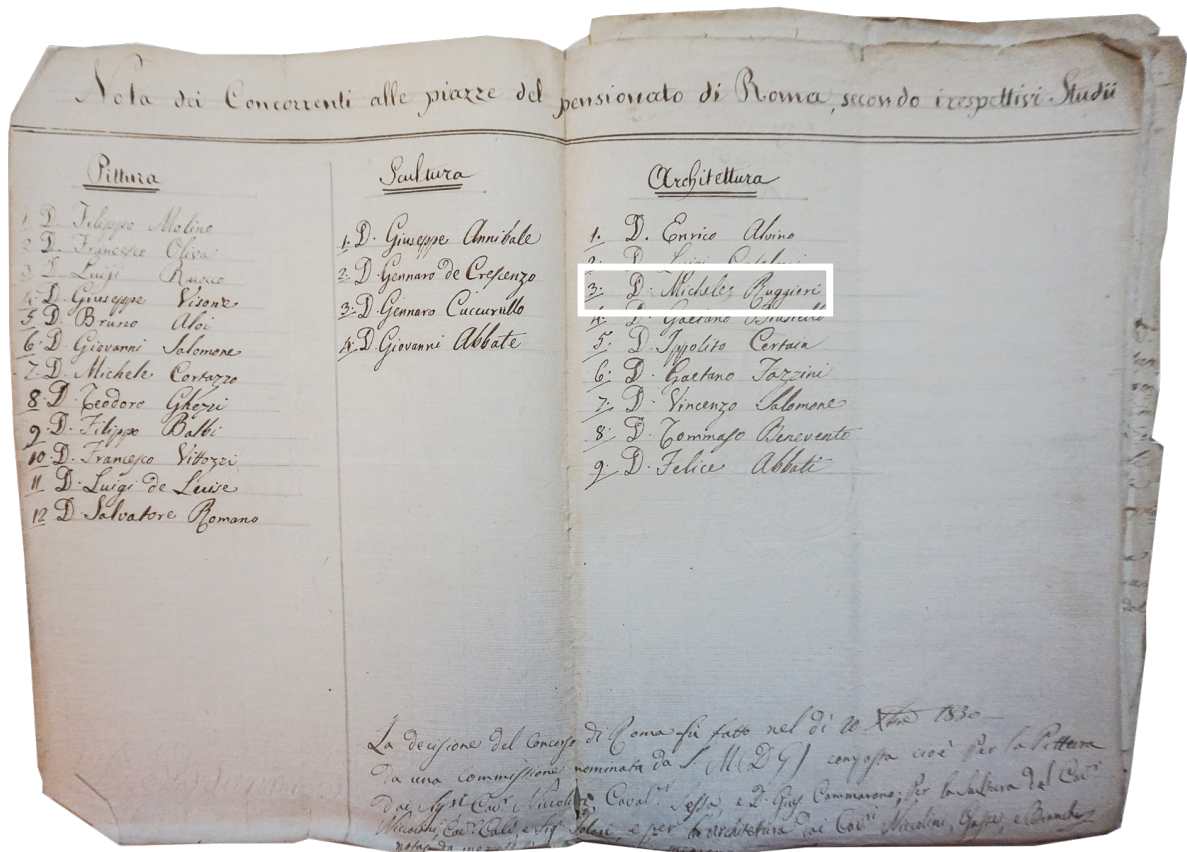 Nota dei Concorrenti alle piazze del pensionato di Roma, secondo i respettivi Studii
Pittura
1 D. Filippo Molino
2 D. Francesco Oliva
3 D. Luigi Ruocco
4. D. Giuseppe Visone
5 D. Bruno Aloi
6. D. Giovanni Salomone
7. D. Michele Cortazzo
8 D. Teodoro Ghezzi
9. D. Filippo Balbi
10. D. Francesco Vittozzi
11 D. Luigi de Luise
12 D. Salvatore Romano
Scultura
1. D. Giuseppe Annibale
2. D. Gennaro de Crescenzo
3. D. Gennaro Cuccurullo
4. D. Giovanni Abbate
Architettura
1. D. Enrico Alvino
2. D. Luigi
3. D. Michele Ruggieri
4. D. Gaetano
5. D. Ippolito Certain
6. D. Gaetano Fazzini
7. D. Vincenzo Salomone
8. D. Tommaso Benevento
9. D. Felice Abbati
La decisione del Concorso di Roma fù fatto nel dì 10 Xbre 1830
da una Commissione nominata da S. M. (D. G.) composta cioè per la Pittura
dai Sigri Cavr Niccolini, Cavalr Sessa, e D. Gius. Cammarano; per la Scultura dal Cavr
Niccolini, Cavr Calì, e Sigr Solari e per l'architettura dai Cavri Niccolini, Gasse, e